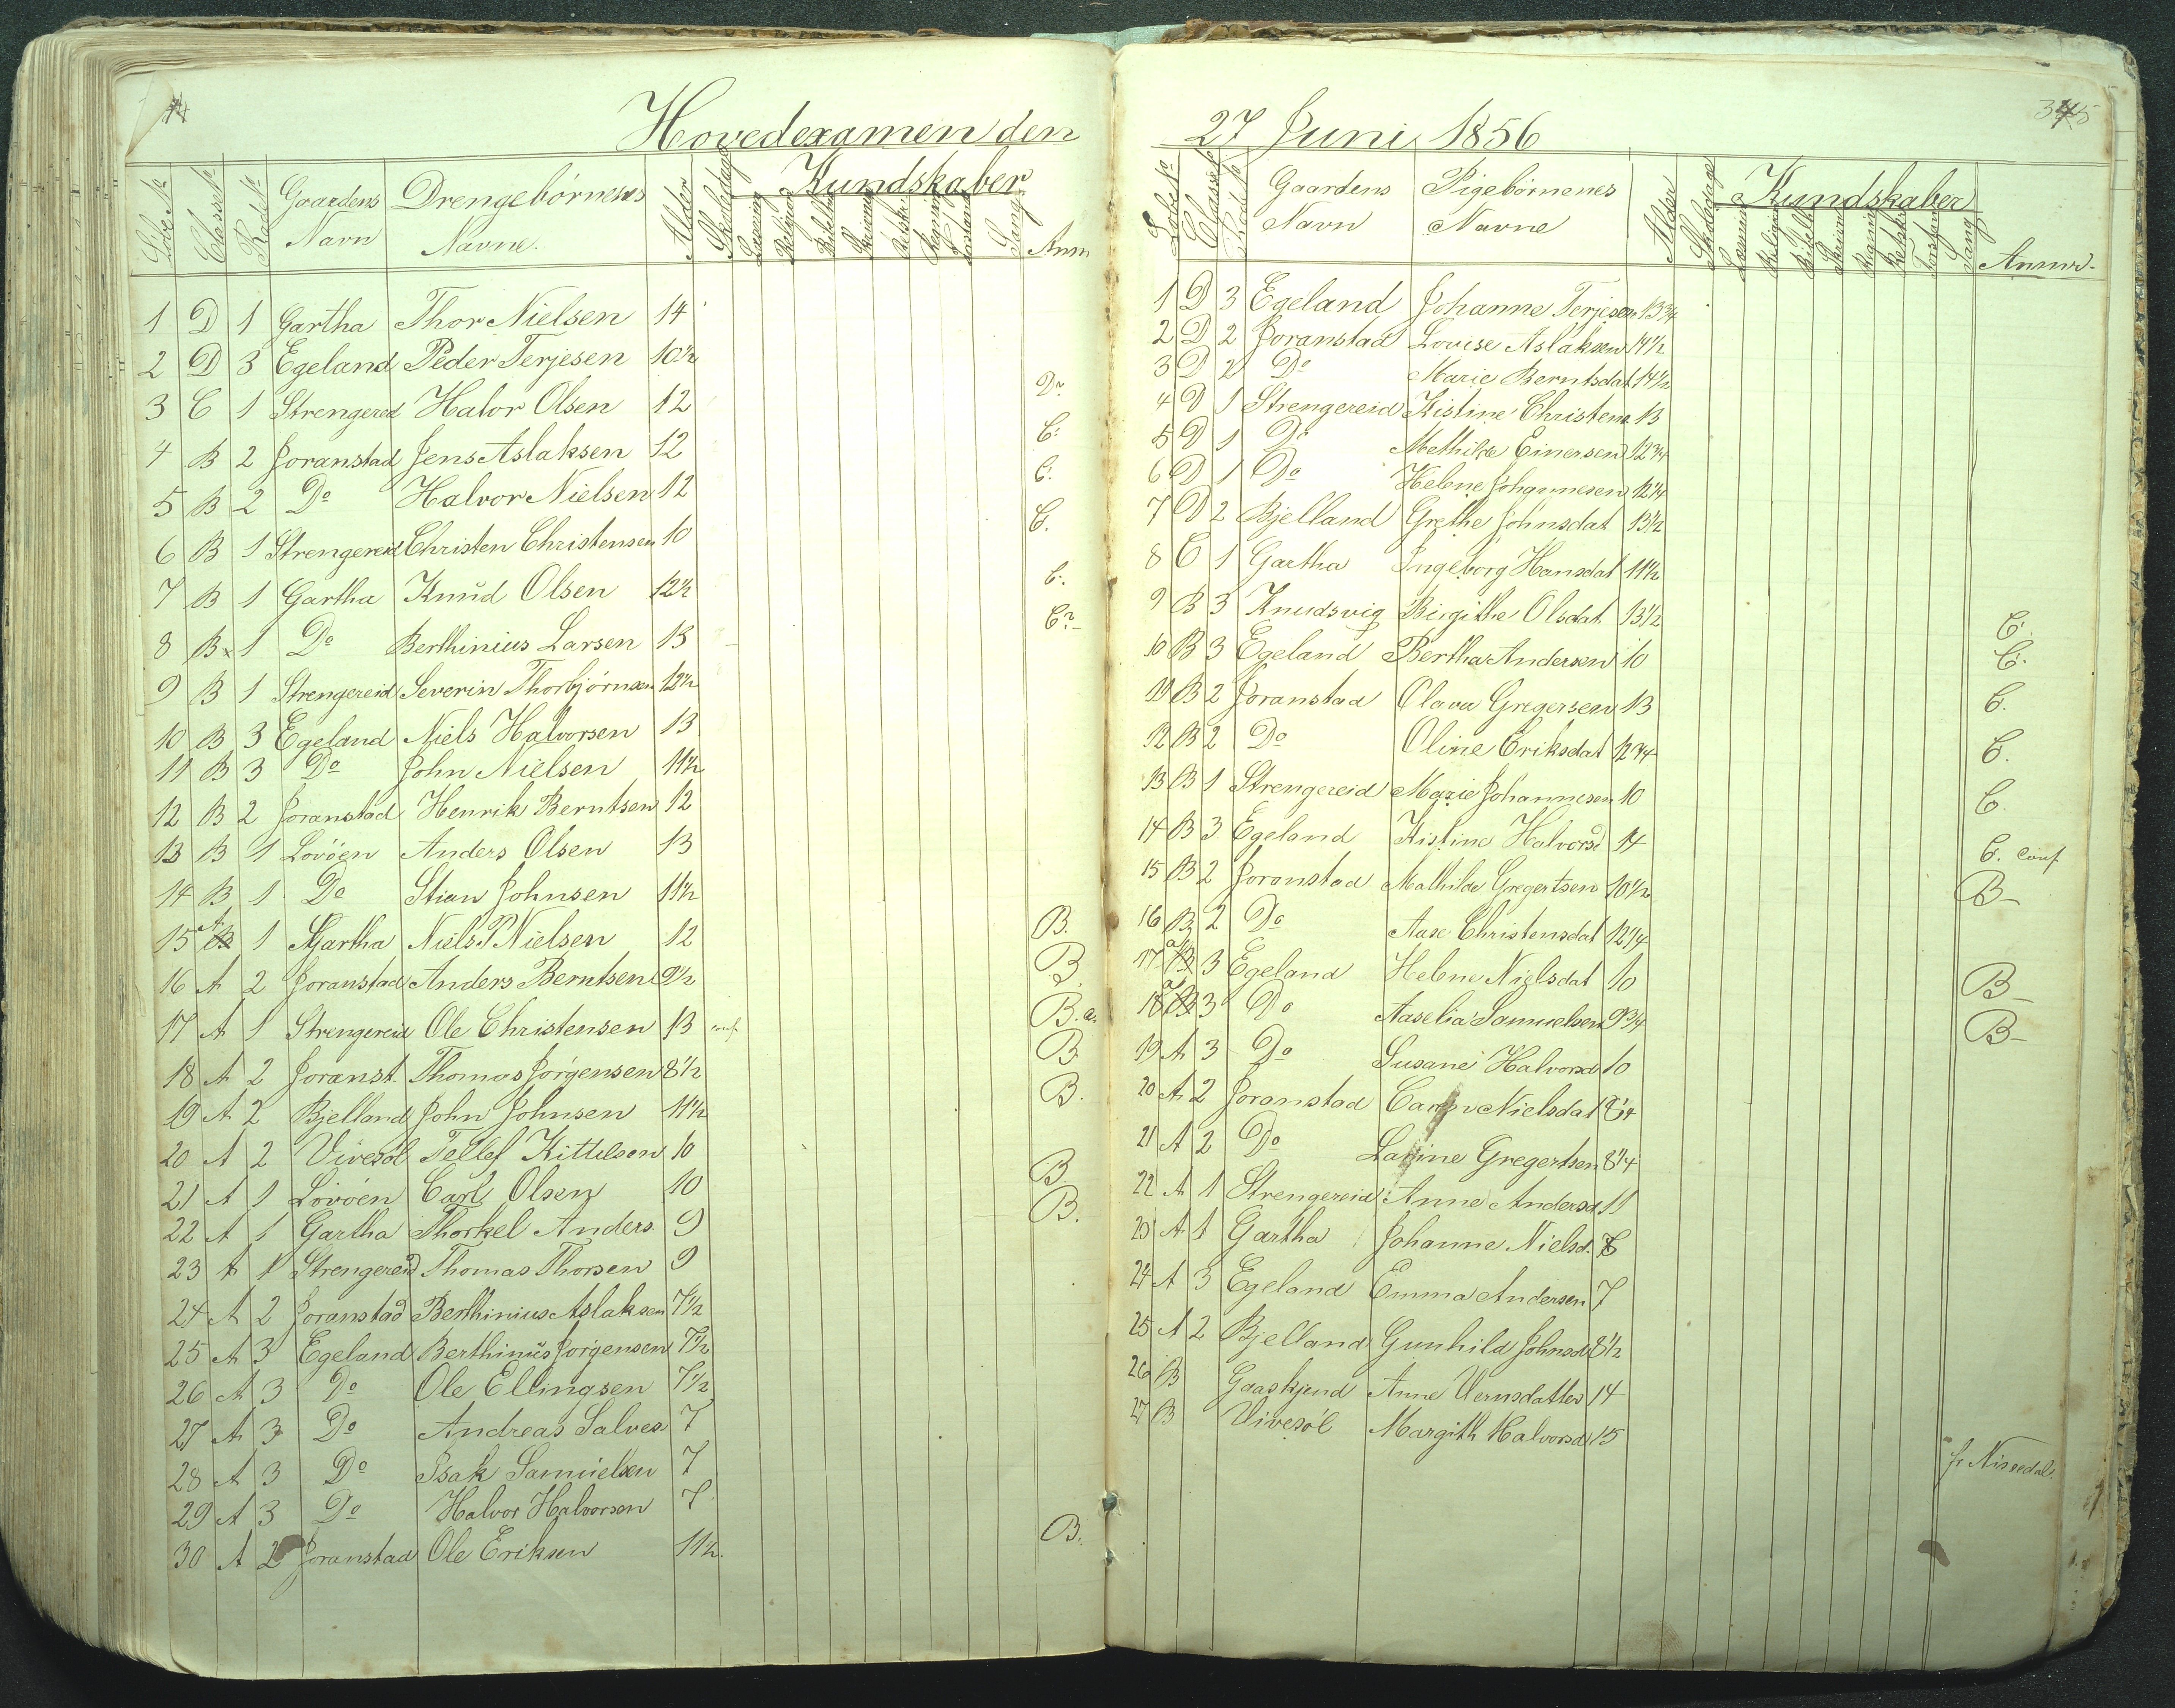 Hovedexamen den
Løbe No Classe No Rode No Gaardens Navn Drengebørnenes Navne. Alder Skoledage Kundskaber Læsning Religion Bibelh. Skrivning Retskr. Regning Forstand Sang Anm
1 D 1 Gartha Thor Nielsen 14
2 D 3 Egeland Peder Terjesen 10½
3 C 1 Strengereid Halvor Olsen 12 D.
4 B 2 Joranstad Jens Aslaksen 12 C.
5 B 2 Do Halvor Nielsen 12 C.
6 B 1 Strengereid Christen Christensen 10 C.
7 B 1 Gartha Knud Olsen 12½ C.
8 B 1 Do Berthinius Larsen 13 C?
9 B 1 Strengereid Severin Thorbjørnsen 12½
10 B 3 Egeland Niels Halvorsen 13
11 B 3 Do John Nielsen 11½
12 B 2 Joranstad Henrik Berntsen 12
13 B 1 Lovöen Anders Olsen 13
14 B 1 Do Stian Johnsen 11½
15 A 1 Gartha Niels P Nielsen 12 B.
16 A 2 Joranstad Anders Berntsen 9½ B.
17 A 1 Strengereid Ole Christensen 13 conf. B. a.
18 A 2 Joranst. Thomas Jørgensen 8½ B
19 A 2 Bjelland John Johnsen 11½ B.
20 A 2 Vivesöl Tellef Kittelsen 10
21 A 1 Lovöen Carl Olsen 10 B.
22 A 1 Gartha Thorkel Anders. 9 B.
23 A 1 Strengereid Thomas Thorsen 9
24 A 2 Joranstad Berthinius Aslaksen 7½
25 A 3 Egeland Berthinius Jørgensen 7½
26 A 3 Do Ole Ellingsen 7½
27 A 3 Do Andreas Salves 7
28 A 3 Do Isak Samuelsen 7
29 A 3 Do Halvor Halvorsen 7
30 A 2 Joranstad Ole Eriksen 11½ B.
345
27 Juni 1856
Løbe No Classe No Rode No Gaardens Navn Pigebørnenes Navne Alder Skoledage Kundskaber Læsning Religion Bibelh. Skrivn. Regning Retskr. Forstand Sang Anmr.
1 D 3 Egeland Johanne Terjesen 13¾
2 D 2 Joranstad Lovise Aslaksen 14½
3 D 2 Do Marie Berntsdat 14½
4 D 1 Strengereid Kistine Christens. 13
5 D 1 Do Mathilde Einersen 12¾
6 D 1 Do Helene Johannesen 12¼
7 D 2 Bjelland Grethe Johnsdat 13½
8 C 1 Gartha Ingeborg Hansdat 11½
9 B 3 Knudsvig Birgithe Olsdat 13½ C.
10 B 3 Egeland Bertha Andersen 10 C.
11 B 2 Joranstad Olava Gregersen 13 C.
12 B 2 Do Oline Eriksdat 12¾ C.
13 B 1 Strengereid Marie Johannesen 10 C.
14 B 3 Egeland Kistine Halvorsd 14 C. conf
15 B 2 Joranstad Mathilde Gregertsen 10½ B
16 B 2 Do Aase Christensdat 12¼
17 a 3 Egeland Helene Nielsdat 10 B
18 a 3 Do Aaselia Samuelsen 9¾ B
19 A 3 Do Susane Halvorsd 10
20 A 2 Joranstad Caren Nielsdat 8¼
21 A 2 Do Lavine Gregertsen 8¼
22 A 1 Strengereid Anne Andersd 11
23 A 1 Gartha Johanne Nielsd. 8
24 A 3 Egeland Emma Andersen 7
25 A 2 Bjelland Gunhild Johnsd 8½
26 B Gaaskjend Anne Vernsdatter 14
27 B Vivesöl Margith Halvorsd 15 fr Nissedal